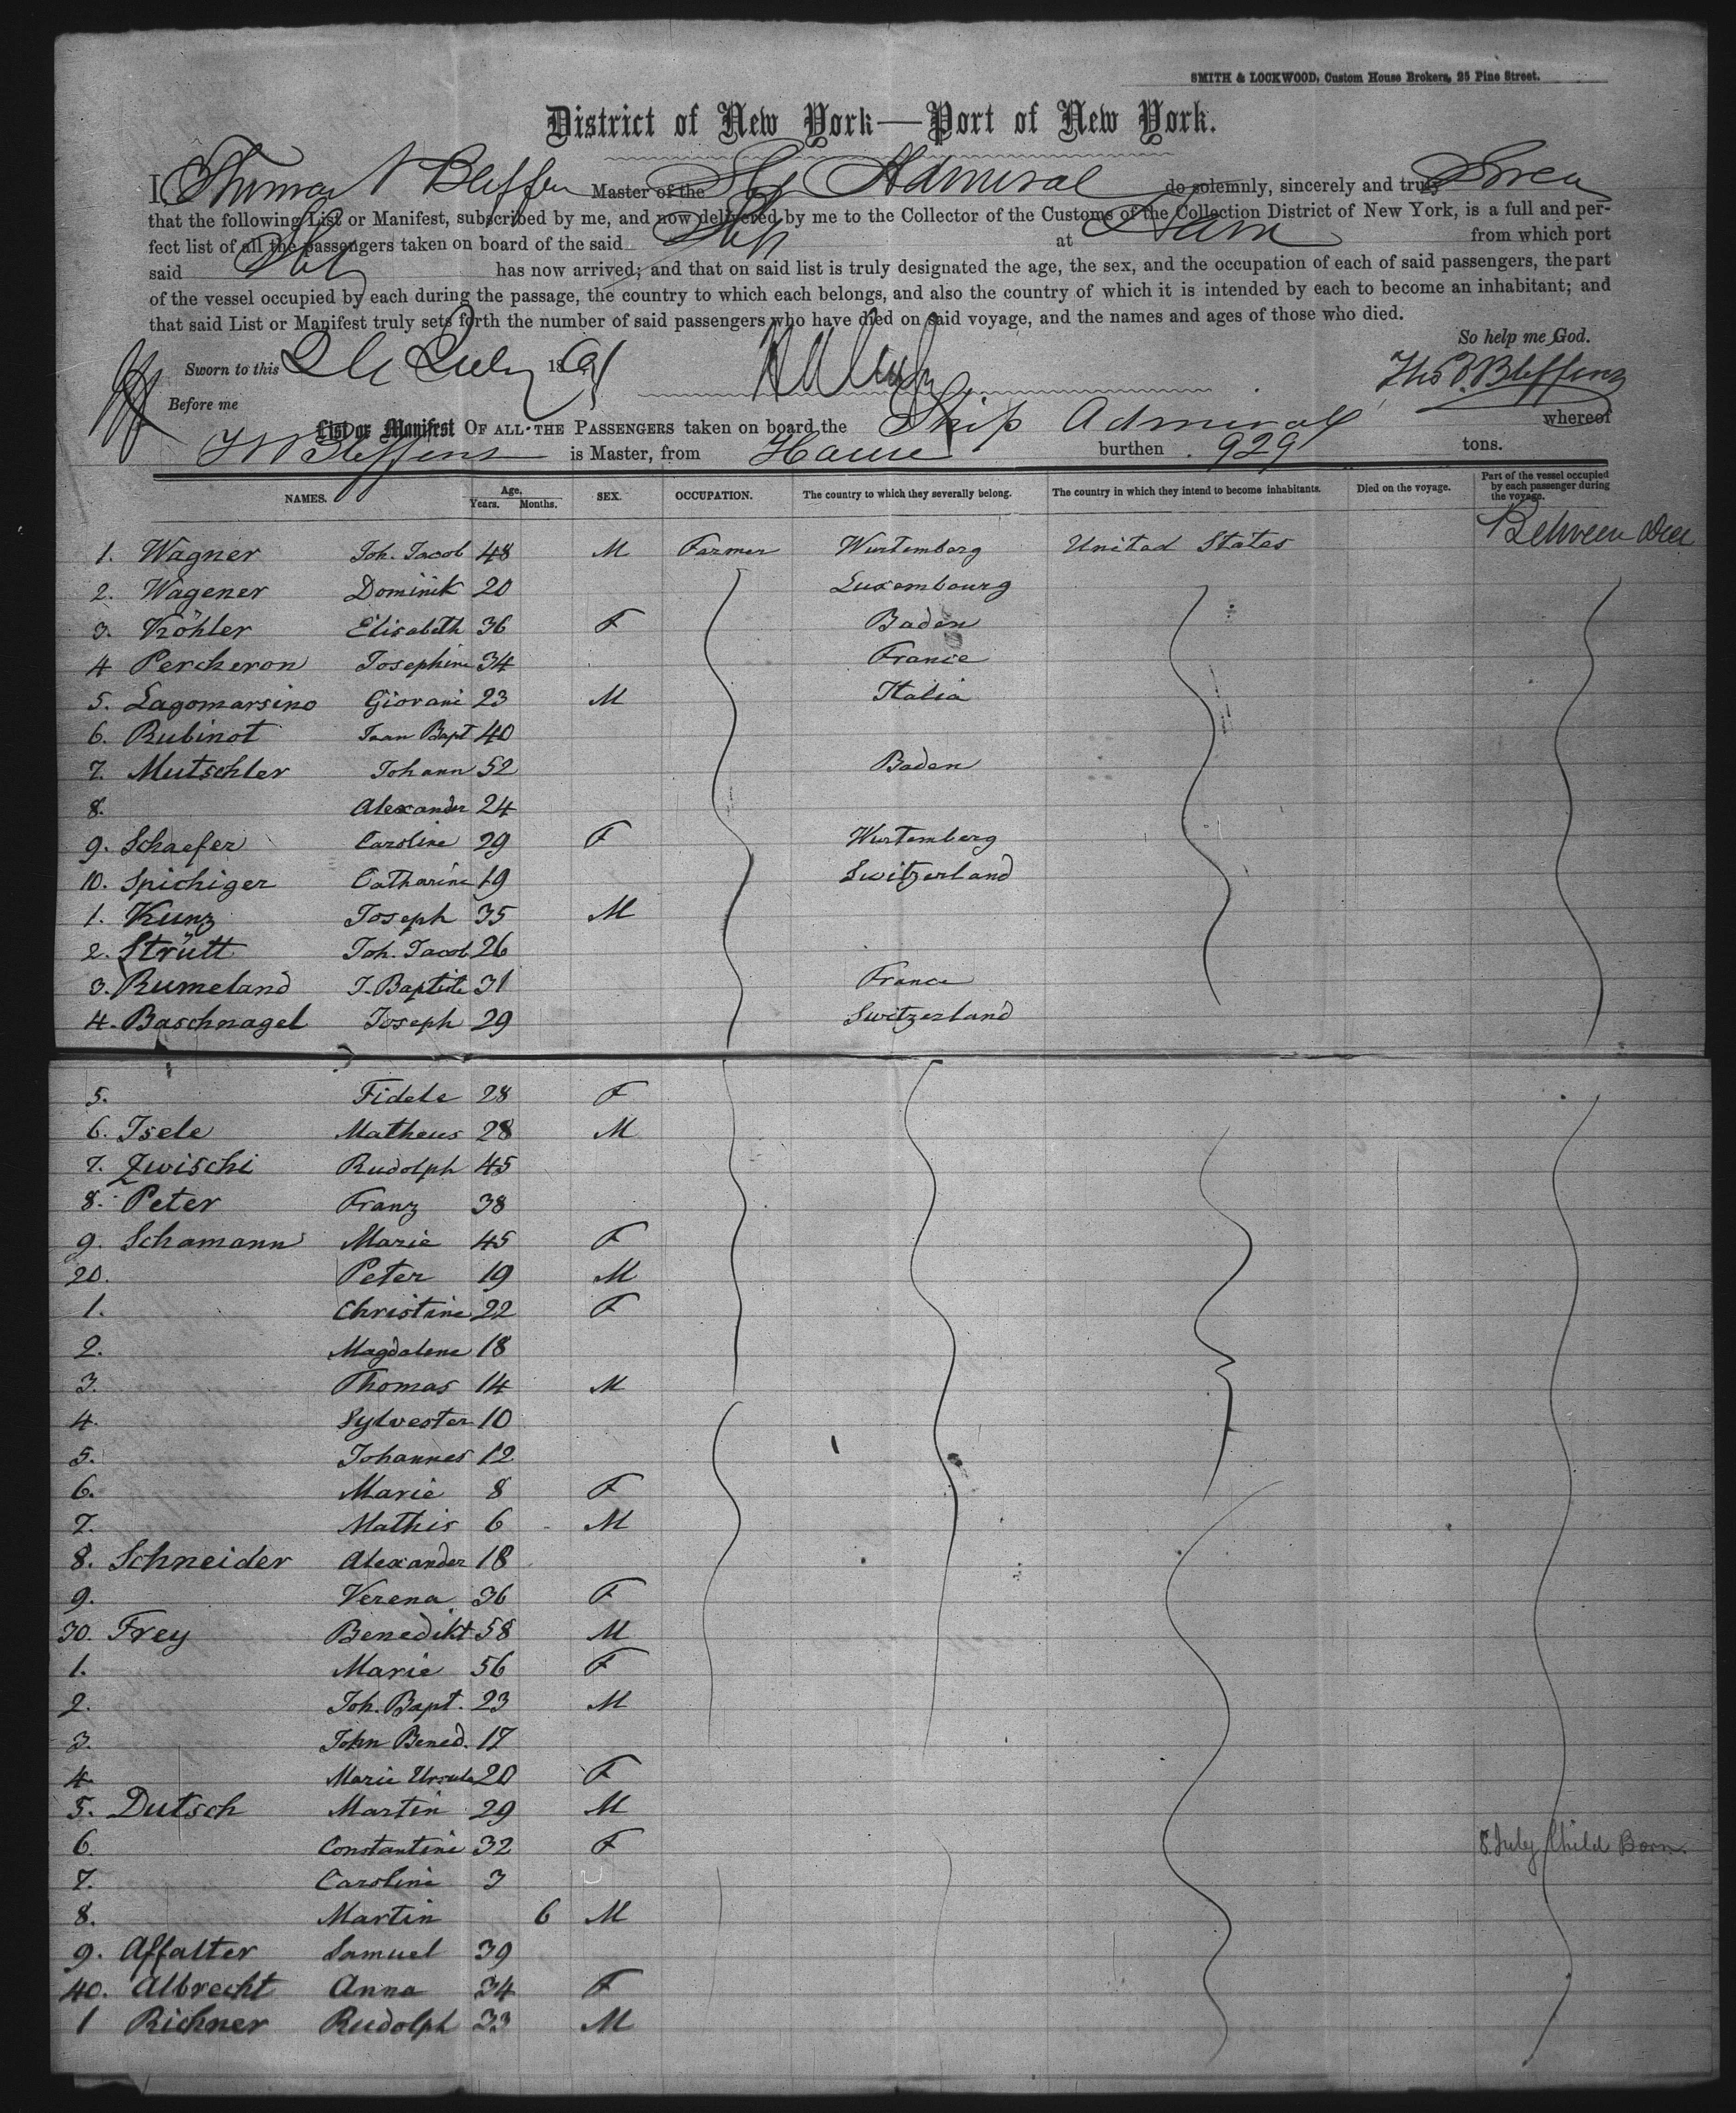 SMITH & LOCKWOOD, Custom House Brokers, 25 Pine Street.
District of New York—Port of New York.
I, Master of the Ship Admiral do solemnly, sincerely and truly Swear
that the following List or Manifest, subscribed by me, and now delivered by me to the Collector of the Customs of the Collection District of New York, is a full and per-
fect list of all the passengers taken on board of the said Ship at from which port
said Ship has now arrived; and that on said list is truly designated the age, the sex, and the occupation of each of said passengers, the part
of the vessel occupied by each during the passage, the country to which each belongs, and also the country of which it is intended by each to become an inhabitant; and
that said List or Manifest truly sets forth the number of said passengers who have died on said voyage, and the names and ages of those who died.
So help me God.
Sworn to this July 186
Before me
List or Manifest OF ALL THE PASSENGERS taken on board the Ship Admiral whereof
is Master, from Havre burthen 929 tons.
NAMES. Age. Years. Months. SEX. OCCUPATION. The country to which they severally belong. The country in which they intend to become inhabitants. Died on the voyage. Part of the vessel occupied by each passenger during the voyage.
1. Wagner Joh. Jacob 48 M Farmer Wurtemberg United States Between
2. Wagener Dominik 20 Luxembourg
3. Köhler Elisabeth 36 F Baden
4 Percheron Josephine 34 France
5. Lagomarsino Giovani 23 M Italia
6. Rubinot Jean Bapt 40
7. Mutschler Johann 52 Baden
8. Alexander 24
9. Schaefer Caroline 29 F Wurtemberg
10. Spichiger Catharine 19 Switzerland
1. Kunz Joseph 35 M
2. Strütt Joh. Jacob 26
3. Rumeland J. Baptiste 31 France
4. Baschnagel Joseph 29 Switzerland
5. Fidele 28 F
6. Isele Matheus 28 M
7. Zwischi Rudolph 45
8. Peter Franz 38
9. Schamann Marie 45 F
20. Peter 19 M
1. Christine 22 F
2. Magdalene 18
3. Thomas 14 M
4. Sylvester 10
5. Johannes 12
6. Marie 8 F
7. Mathis 6 M
8. Schneider Alexander 18
9. Verena 36 F
30. Frey Benedikt 58 M
1. Marie 56 F
2. Joh. Bapt. 23 M
3. John Bened. 17
4. Marie Ursula 20 F
5. Dutsch Martin 29 M
6. Constantine 32 F 8 July Child Born.
7. Caroline 3
8. Martin 6 M
9. Affalter Samuel 39
40. Albrecht Anna 34 F
1 Richner Rudolph 33 M